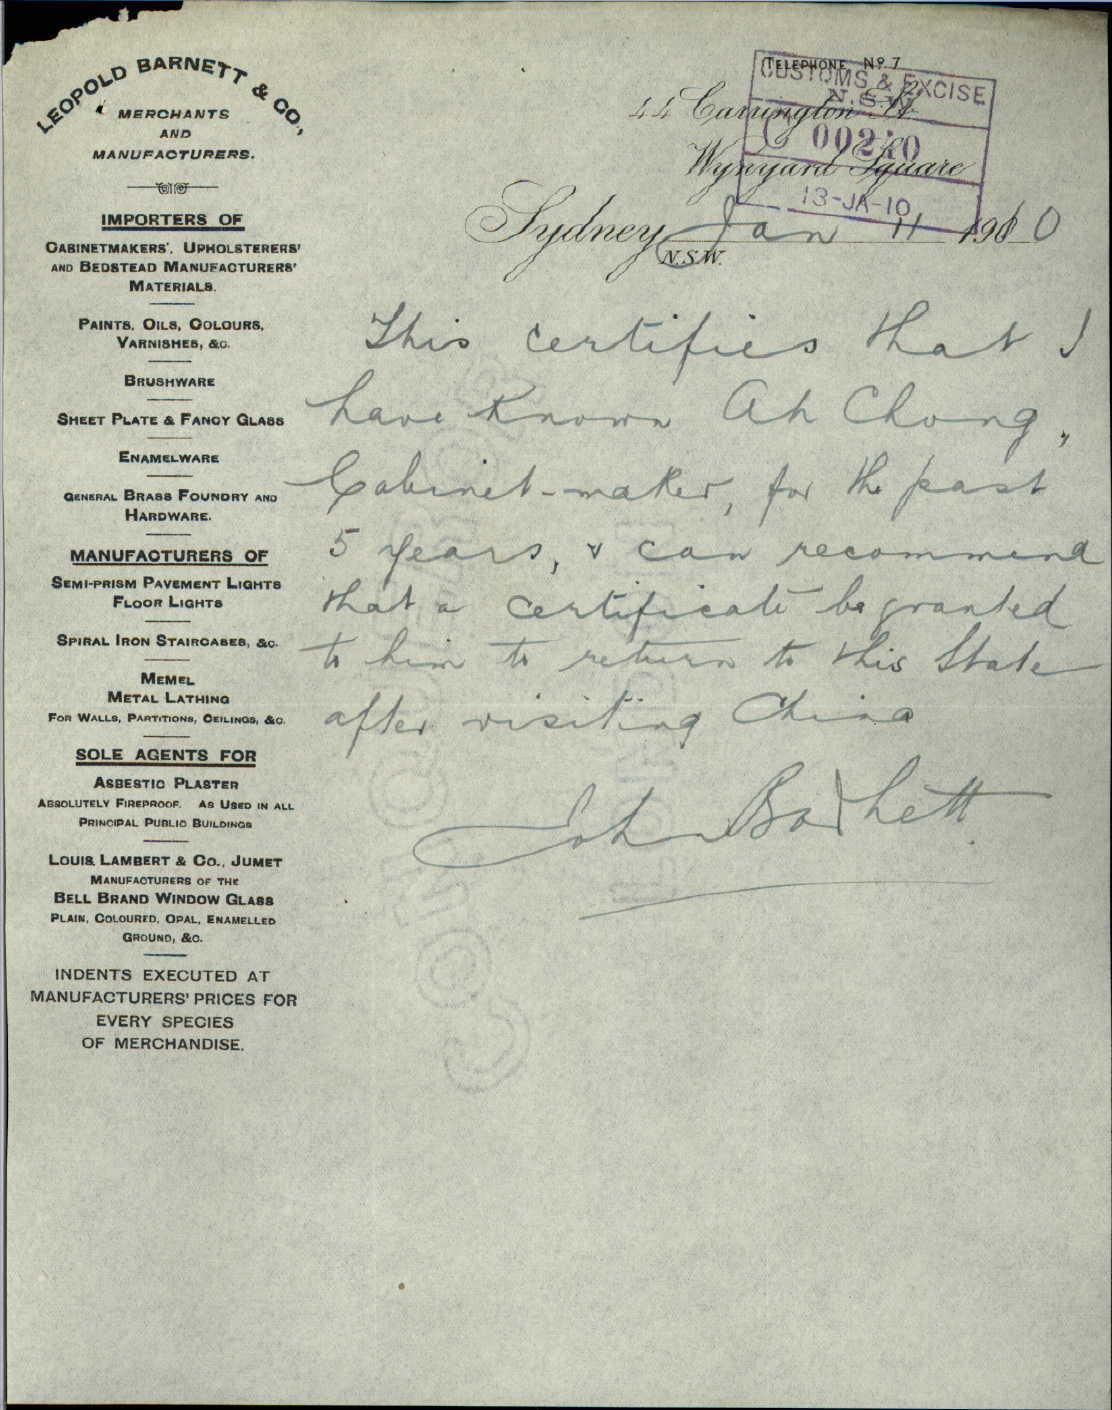 LEOPOLD BARNETT & CO.,
MERCHANTS
AND
MANUFACTURERS.
IMPORTERS OF
CABINETMAKERS', UPHOLSTERERS'
AND BEDSTEAD MANUFACTURERS'
MATERIALS.
PAINTS, OILS, COLOURS,
VARNISHES, &C.
BRUSHWARE
SHEET PLATE & FANCY GLASS
ENAMELWARE
GENERAL BRASS FOUNDRY AND
HARDWARE.
MANUFACTURERS OF
SEMI-PRISM PAVEMENT LIGHTS
FLOOR LIGHTS
SPIRAL IRON STAIRCASES, &C.
MEMEL
METAL LATHING
FOR WALLS, PARTITIONS, CEILINGS, &C.
SOLE AGENTS FOR
ASBESTIC PLASTER
ABSOLUTELY FIREPROOF. AS USED IN ALL
PRINCIPAL PUBLIC BUILDINGS
LOUIS LAMBERT & CO., JUMET
MANUFACTURERS OF THE
BELL BRAND WINDOW GLASS
PLAIN, COLOURED, OPAL, ENAMELLED
GROUND, &C.
INDENTS EXECUTED AT
MANUFACTURERS' PRICES FOR
EVERY SPECIES
OF MERCHANDISE.
TELEPHONE Nº 7
CUSTOMS & EXCISE
N.S.W.
44 Carrington St
Wynyard Square
13-JA-10
Sydney Jan 11 1910
N.S.W.
This certifies that I
have known Ah Chong,
Cabinet-maker, for the past
5 years, & can recommend
that a certificate be granted
to him to return to this State
after visiting China
John